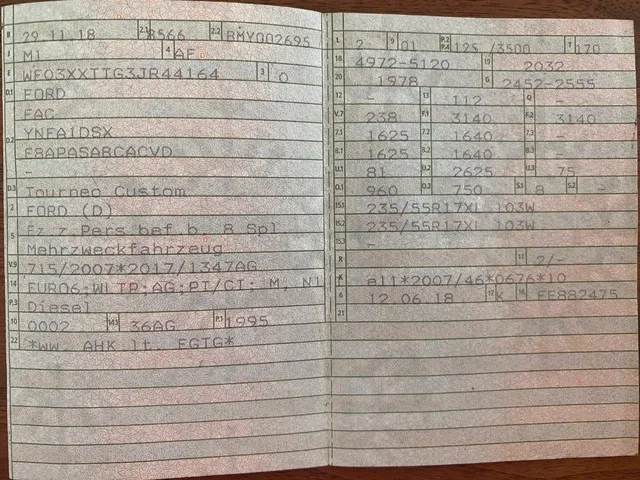 B 29.11.18 2.1 8566 2.2 BMY002695
J M1 4 AF
E WF03XXTTG3JR44164 3 0
D.1 FORD
FAC
D.2 YNFA1DSX
E8APASABCACVD
-
D.3 Tourneo Custom
2 FORD (D)
5 Fz.z.Pers.bef.b. 8 Spl.
Mehrzweckfahrzeug
V.9 715/2007*2017/1347AG
14 EURO6;WLTP;AG;PI/CI; M, N1
P.3 Diesel
10 0002 14.1 36AG P.1 1995
22 *ww. AHK lt. EGTG*
L 2 9 01 P.2 P.4 125 /3500 T 170
18 4972-5120 19 2032
20 1978 G 2452-2555
12 - 13 112 Q -
V.7 238 F.1 3140 F.2 3140
7.1 1625 7.2 1640 7.3 -
8.1 1625 8.2 1640 8.3 -
U.1 81 U.2 2625 U.3 75
O.1 960 O.2 750 S.1 8 S.2 -
15.1 235/55R17XL 103W
15.2 235/55R17XL 103W
15.3 -
R 11 2/-
K e11*2007/46*0676*10
6 12.06.18 17 K 16 FF882475
21